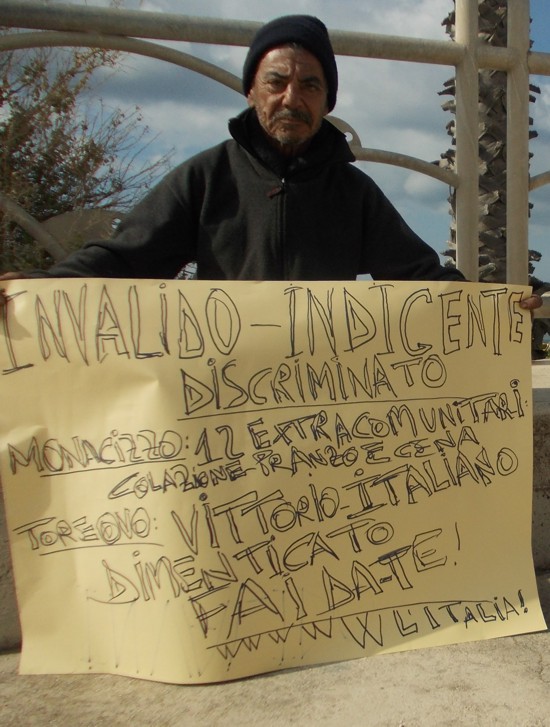 INVALIDO-INDIGENTE
DISCRIMINATO
MONACIZZO: 12 EXTRACOMUNITARI:
COLAZIONE-PRANZO E CENA
TOREOVO: VITTORIO-ITALIANO
DIMENTICATO
FAI DA-TE!
WWWWW L'ITALIA!